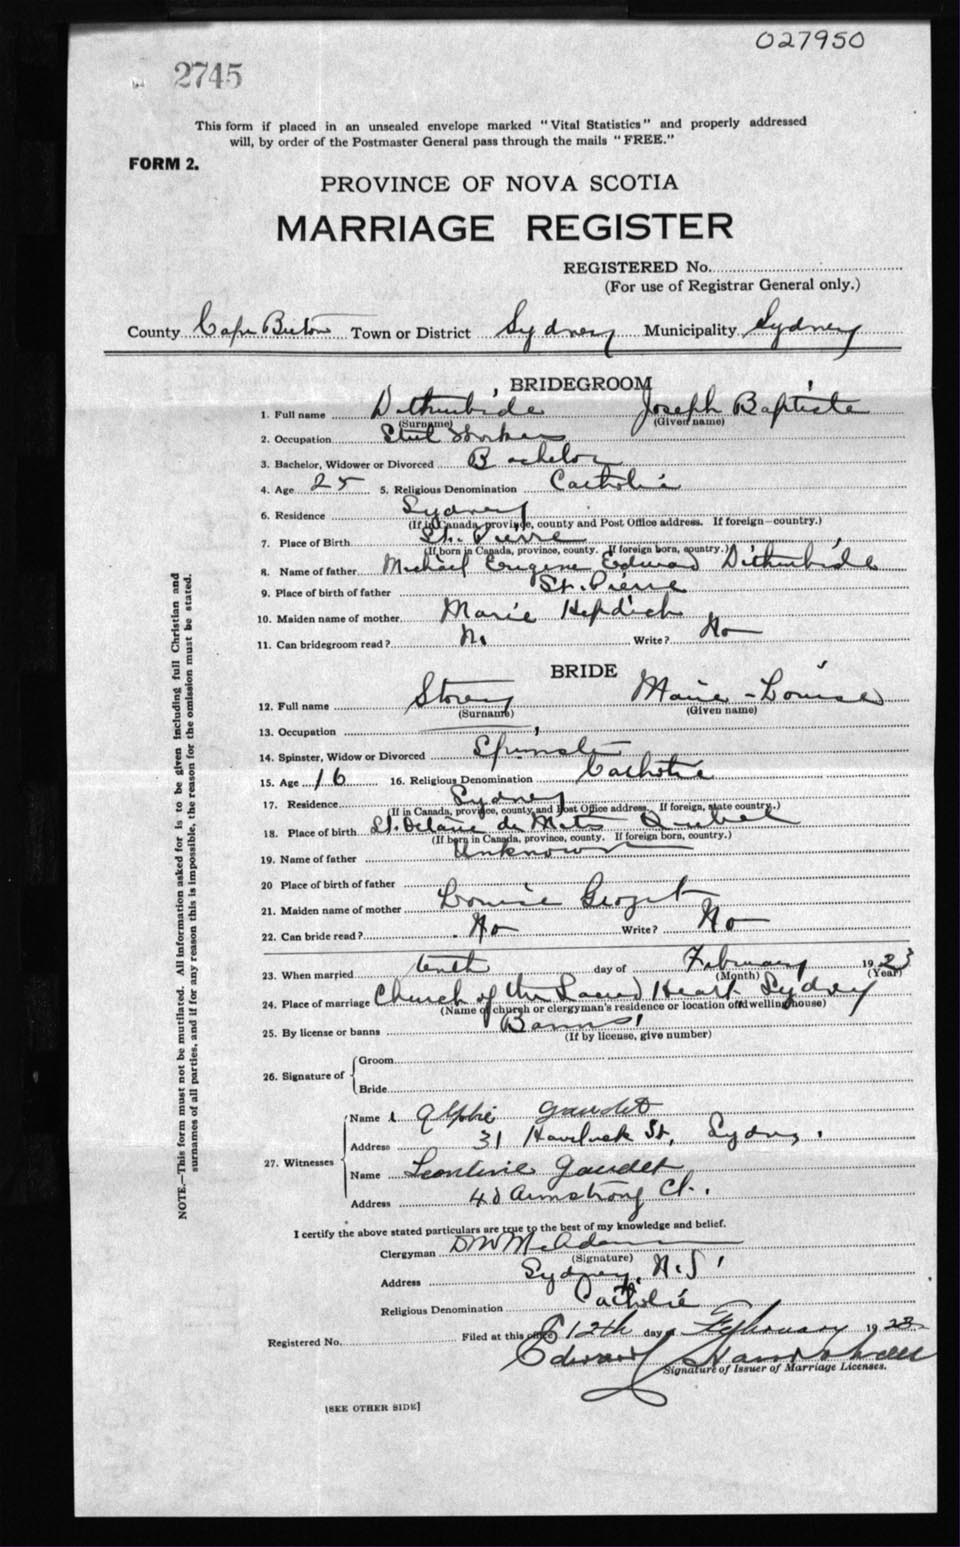 027950
2745
This form if placed in an unsealed envelope marked "Vital Statistics" and properly addressed
will, by order of the Postmaster General pass through the mails "FREE."
FORM 2.
PROVINCE OF NOVA SCOTIA
MARRIAGE REGISTER
REGISTERED No.
(For use of Registrar General only.)
County Cape Breton Town or District Sydney Municipality Sydney
BRIDEGROOM
1. Full name Dithurbide Joseph Baptiste
(Surname) (Given name)
2. Occupation Steel Worker
3. Bachelor, Widower or Divorced Bachelor
4. Age 25 5. Religious Denomination Catholic
6. Residence Sydney
(If in Canada, province, county and Post Office address. If foreign—country.)
7. Place of Birth St. Pierre
(If born in Canada, province, county. If foreign born, country.)
8. Name of father Michael Eugene Edward Dithurbide
9. Place of birth of father St. Pierre
10. Maiden name of mother Marie
11. Can bridegroom read? No Write? No
BRIDE
12. Full name Storey Marie-Louise
(Surname) (Given name)
13. Occupation
14. Spinster, Widow or Divorced Spinster
15. Age 16 16. Religious Denomination Catholic
17. Residence Sydney
(If in Canada, province, county and Post Office address. If foreign, state country.)
18. Place of birth St. Octave de Metis Quebec
(If born in Canada, province, county. If foreign born, country.)
19. Name of father Unknown
20 Place of birth of father
21. Maiden name of mother Louise
22. Can bride read? No Write? No
23. When married tenth day of February 1923
(Month) (Year)
24. Place of marriage Church of the Sacred Heart Sydney
(Name of church or clergyman's residence or location of dwelling house)
25. By license or banns Banns
(If by license, give number)
26. Signature of Groom
Bride
27. Witnesses Name Alphie Gaudet
Address 31 Havelock St, Sydney.
Name Leontine Gaudet
Address 48 Armstrong Ct.
I certify the above stated particulars are true to the best of my knowledge and belief.
Clergyman DW McAdam
(Signature)
Address Sydney, N.S.
Religious Denomination Catholic
Registered No. Filed at this office 12th day Feby 1923
Edward
Signature of Issuer of Marriage Licenses.
[SEE OTHER SIDE]
NOTE.—This form must not be mutilated. All information asked for is to be given including full Christian and
surnames of all parties, and if for any reason this is impossible, the reason for the omission must be stated.